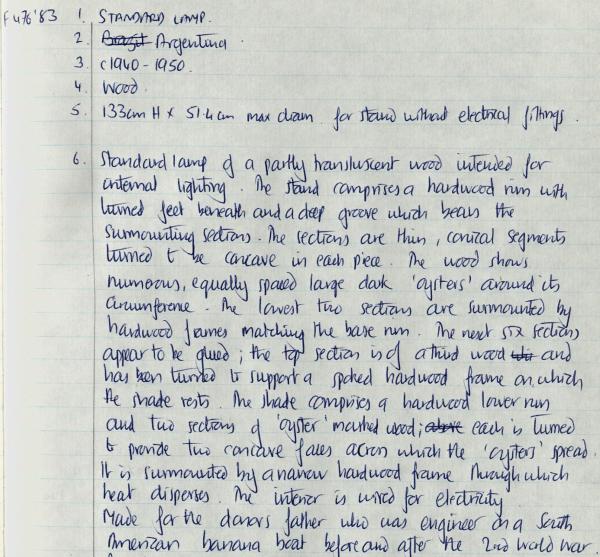 F476'83 1. STANDARD LAMP.
2. Brazil Argentina.
3. c1940-1950.
4. Wood.
5. 133cm H x 51.4cm max diam for stand without electrical fittings.
6. Standard lamp of a partly transluscent wood intended for
internal lighting. The stand comprises a hardwood rim with
turned feet beneath and a deep groove which bears the
surmounting sections. The sections are thin, conical segments
turned to be concave in each piece. The wood shows
numerous, equally spaced large dark 'oysters' around its
circumference. The lowest two sections are surmounted by
hardwood frames matching the base rim. The next six sections
appear to be glued; the top section is of a third wood and
has been turned to support a spoked hardwood frame on which
the shade rests. The shade comprises a hardwood lower rim
and two sections of 'oyster' marked wood; above each is turned
to provide two concave faces across which the 'oysters' spread.
It is surmounted by a narrow hardwood frame through which
heat disperses. The interior is wired for electricity
Made for the donors father who was engineer on a South
American banana boat before and after the 2nd world war